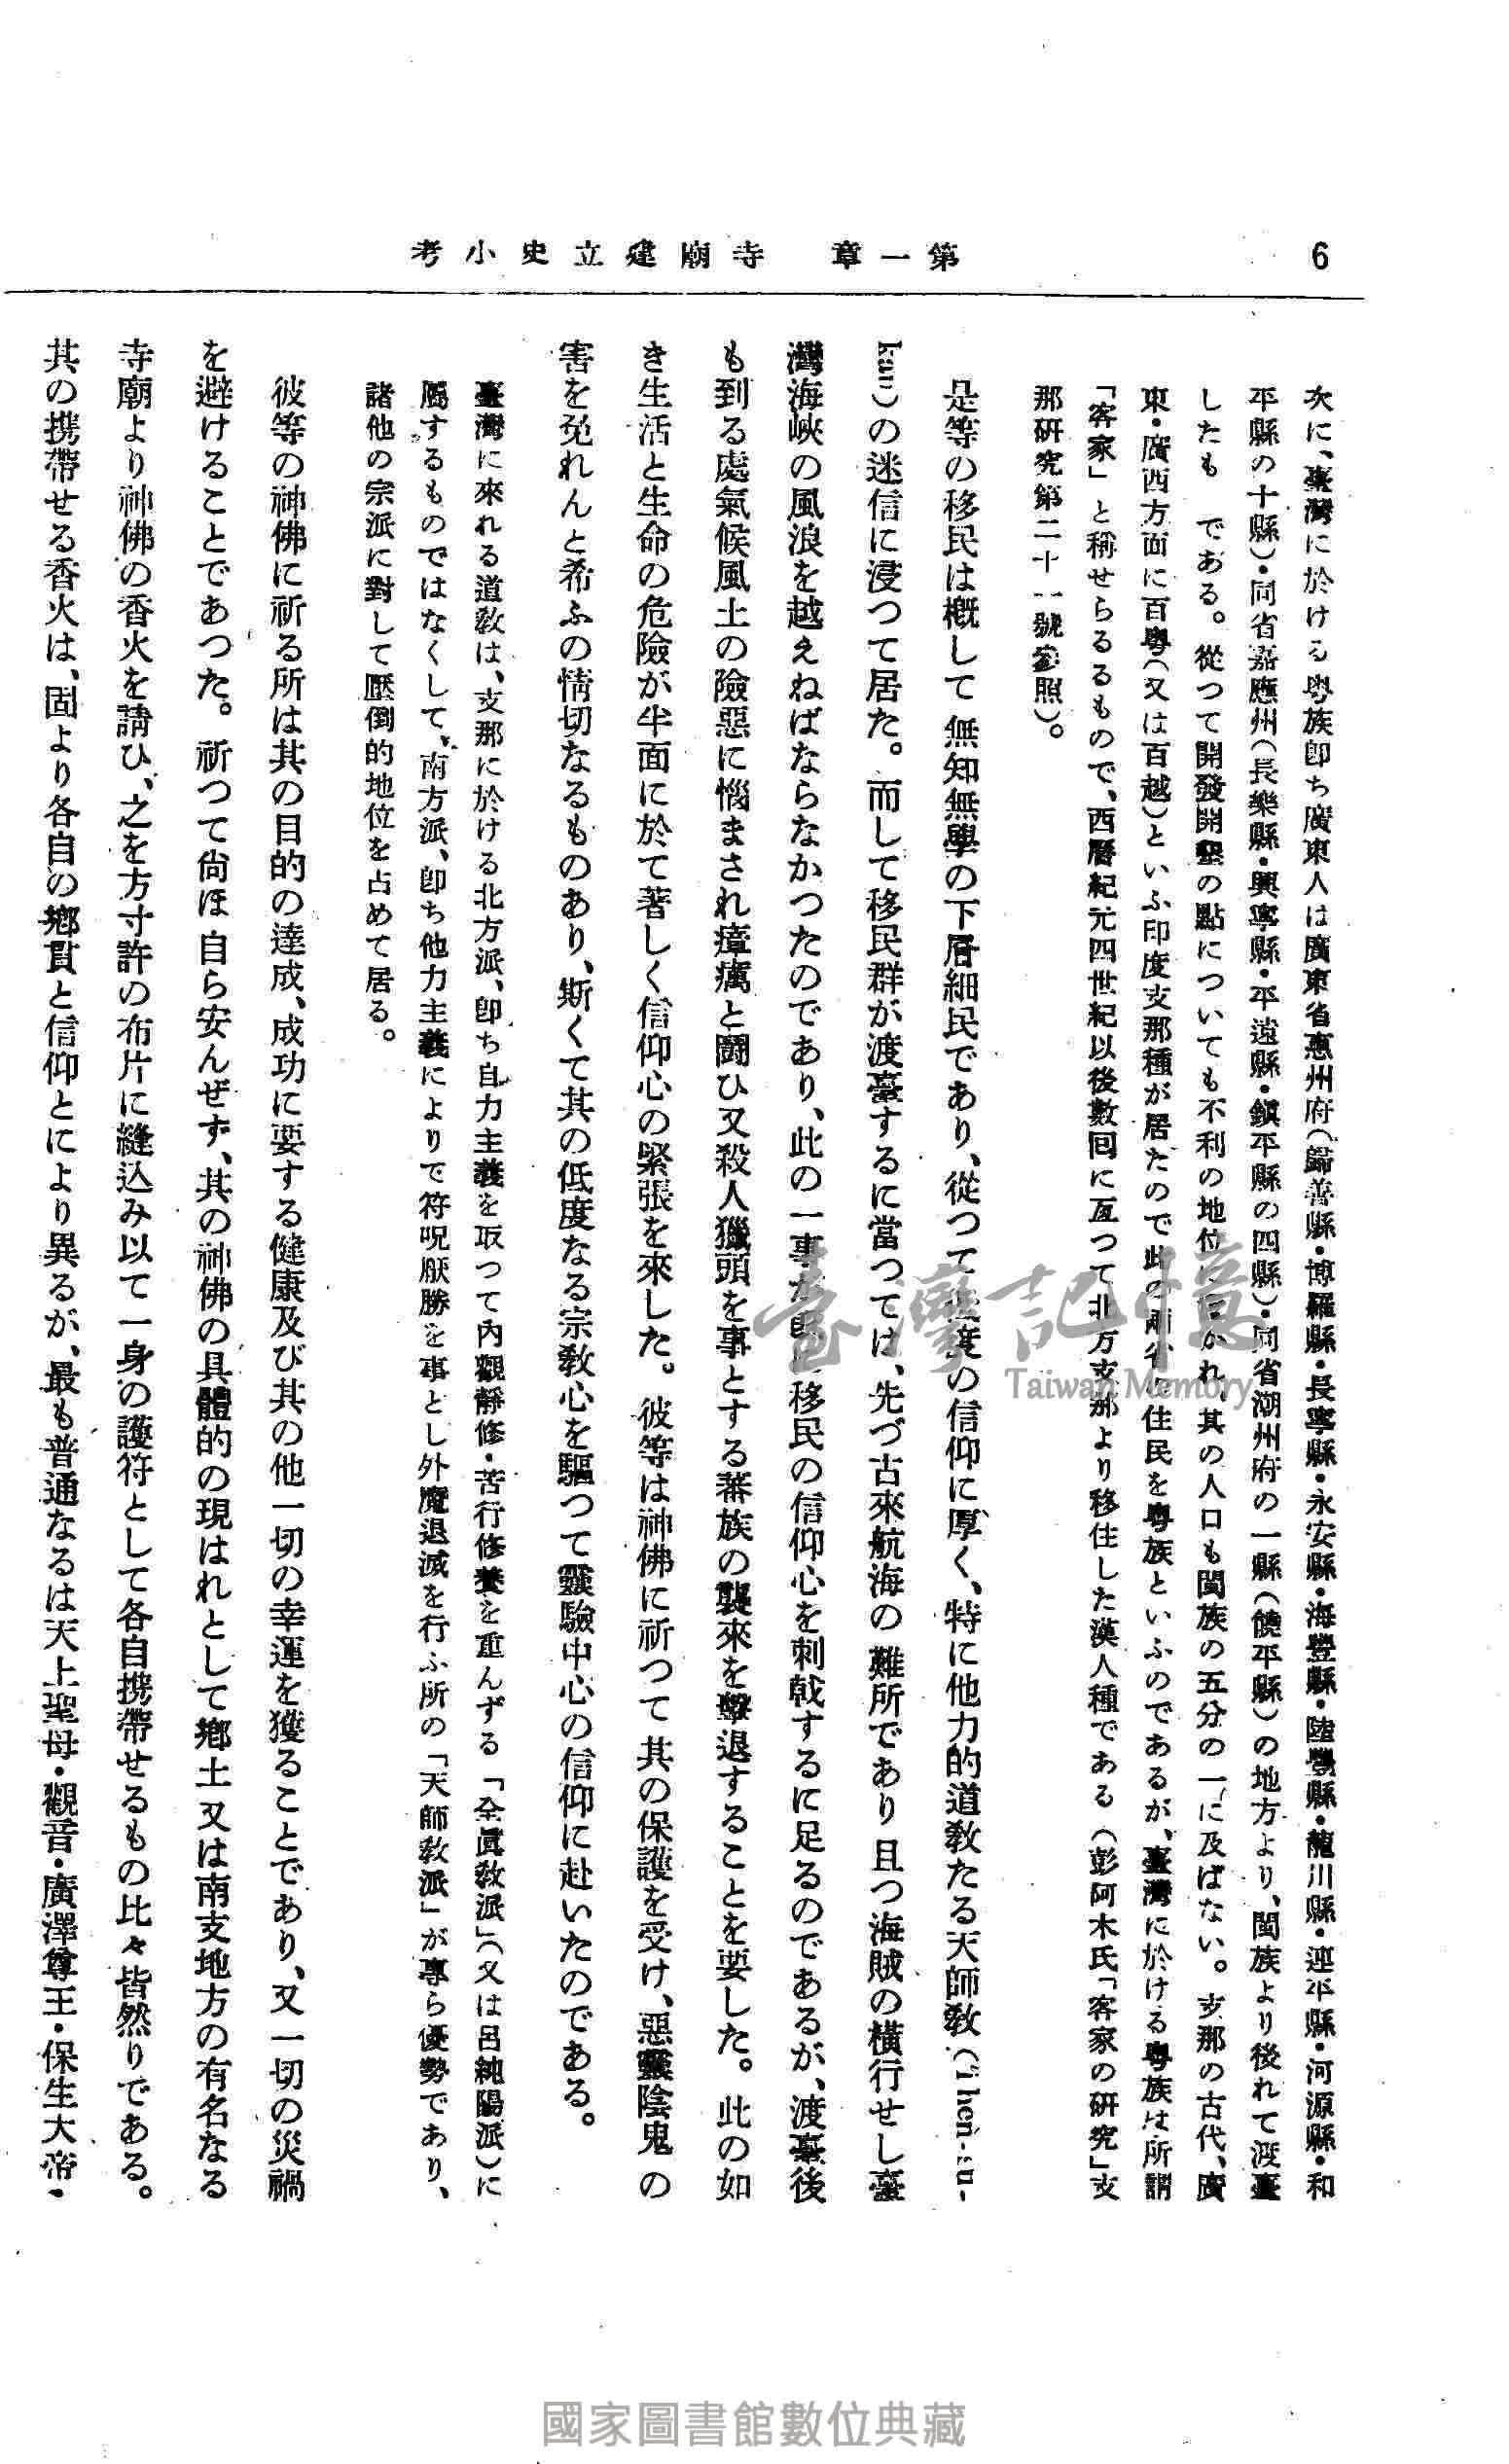 6
第一章　寺廟建立史小考
次に、臺灣に於ける粤族卽ち廣東人は廣東省惠州府(歸善縣・博羅縣・長寧縣・永安縣・海豐縣・陸豐縣・龍川縣・連平縣・河源縣・和
平縣の十縣)・同省嘉應州(長樂縣・興寧縣・平遠縣・鎭平縣の四縣)・同省潮州府の一縣(饒平縣)の地方より、閩族より後れて渡臺
したも　である。從つて開發開墾の點についても不利の地位に かれ、其の人口も閩族の五分の一に及ばない。支那の古代、廣
東・廣西方面に百粤(又は百越)といふ印度支那種が居たので此の兩省 住民を粤族といふのであるが、臺灣に於ける粤族は所謂
「客家」と稱せらるるもので、西曆紀元四世紀以後數囘に亙つて北方支那より移住した漢人種である(彭阿木氏「客家の硏究」支
那硏究第二十一號參照)。
是等の移民は槪して無知無學の下層細民であり、從つて 度の信仰に厚く、特に他力的道敎たる天師敎(Then-su-
kau)の迷信に浸つて居た。而して移民群が渡臺するに當つては、先づ古來航海の難所であり且つ海賊の橫行せし臺
灣海峽の風浪を越えねばならなかつたのであり、此の一事 移民の信仰心を刺戟するに足るのであるが、渡臺後
も到る處氣候風土の險惡に惱まされ瘴癘と鬪ひ又殺人獵頭を事とする蕃族の襲來を擊退することを要した。此の如
き生活と生命の危險が半面に於て著しく信仰心の緊張を來した。彼等は神佛に祈つて其の保護を受け、惡靈陰鬼の
害を免れんと希ふの情切なるものあり、斯くて其の低度なる宗敎心を驅つて靈驗中心の信仰に赴いたのである。
臺灣に來れる道敎は、支那に於ける北方派、卽ち自力主義を取つて內觀靜修・苦行修養を重んずる「全眞敎派」(又は呂純陽派)に
屬するものではなくして、南方派、卽ち他力主義によりて符呪厭勝を事とし外魔退滅を行ふ所の「天師敎派」が專ら優勢であり、
諸他の宗派に對して壓倒的地位を占めて居る。
彼等の神佛に祈る所は其の目的の達成、成功に要する健康及び其の他一切の幸運を獲ることであり、又一切の災禍
を避けることであつた。祈つて尙ほ自ら安んぜず、其の神佛の具體的の現はれとして鄕土又は南支地方の有名なる
寺廟より神佛の香火を請ひ、之を方寸許の布片に縫込み以て一身の護符として各自携帶せるもの比々皆然りである。
其の携帶せる香火は、固より各自の鄕貫と信仰とにより異るが、最も普通なるは天上聖母・觀音・廣澤尊王・保生大帝・
臺灣記憶
Taiwan Memory
國家圖書館數位典藏